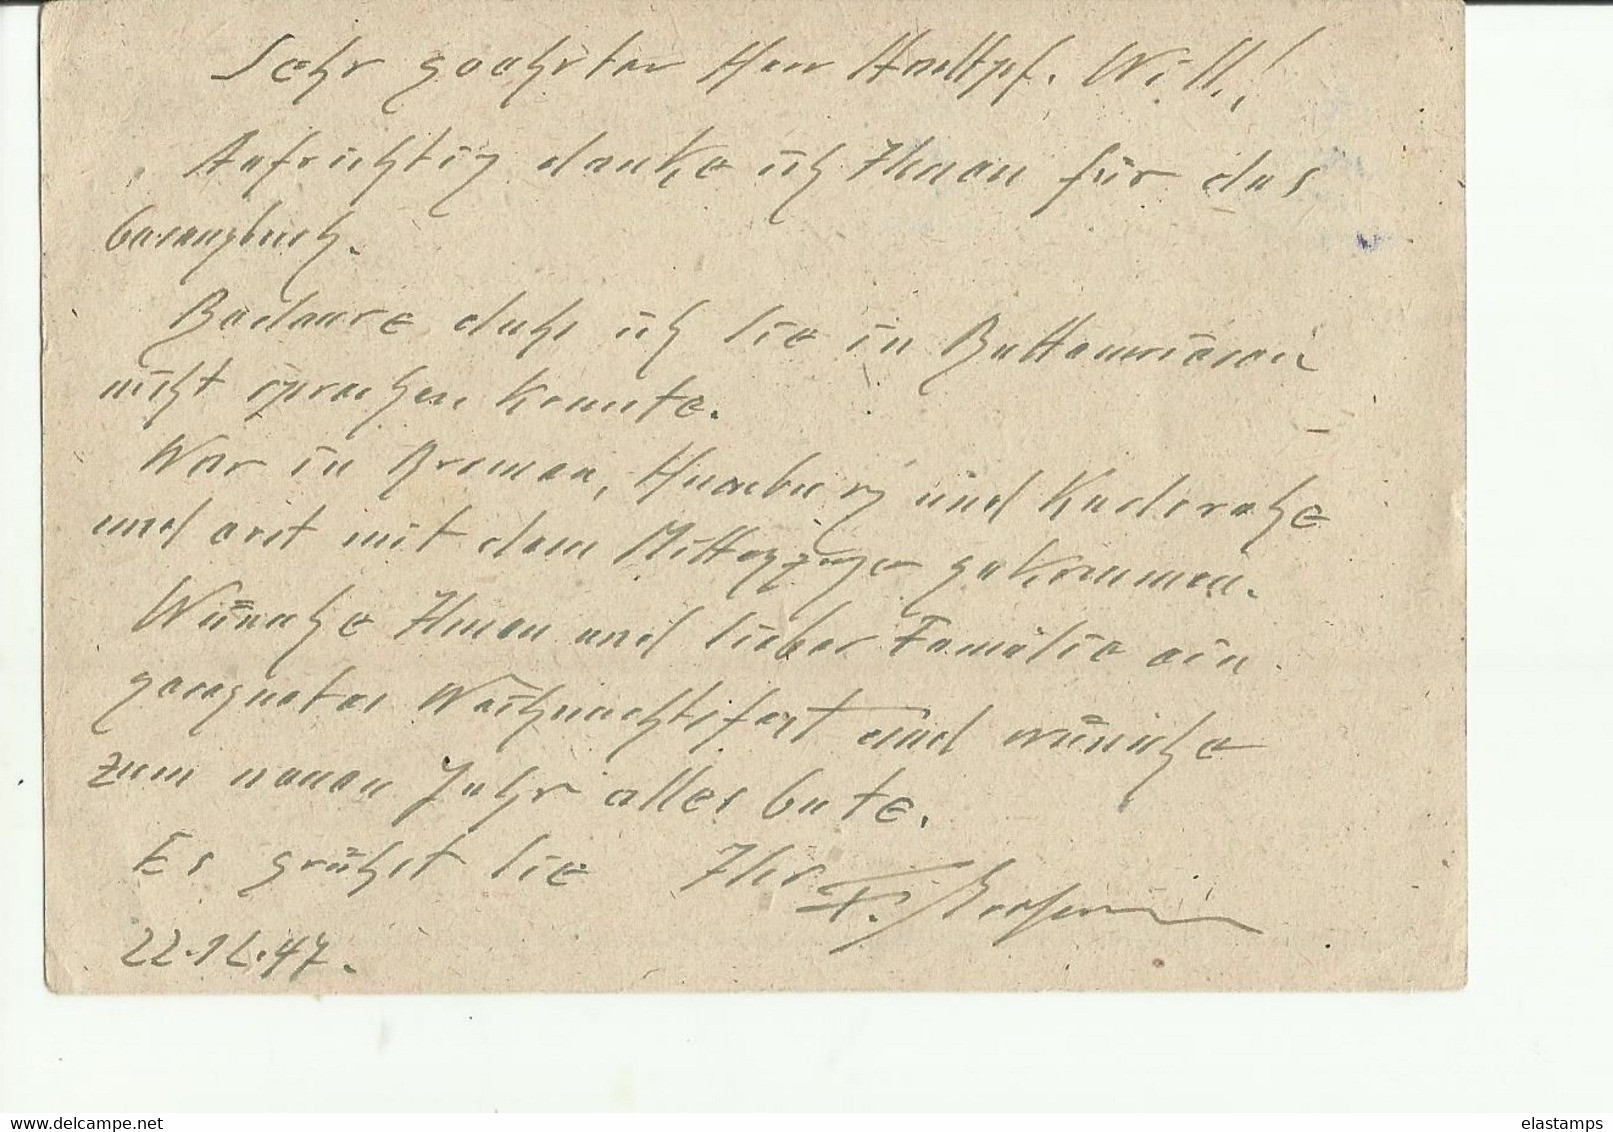 Sehr geehrter Herr Will!
Aufrichtig danke ich Ihnen für das
Gesangbuch.
Bedaure daß ich Sie in Buttenwiesen
nicht sprechen konnte.
War in Bremen, Hamburg und
und erst mit dem Mittagszuge gekommen.
Wünsche Ihnen und lieber Familie ein
gesegnetes Weihnachtsfest und wünsche
zum neuen Jahr alles Gute.
Es grüßt Sie Ihr
22.12.47.
elastamps.delcampe.net
elastamps